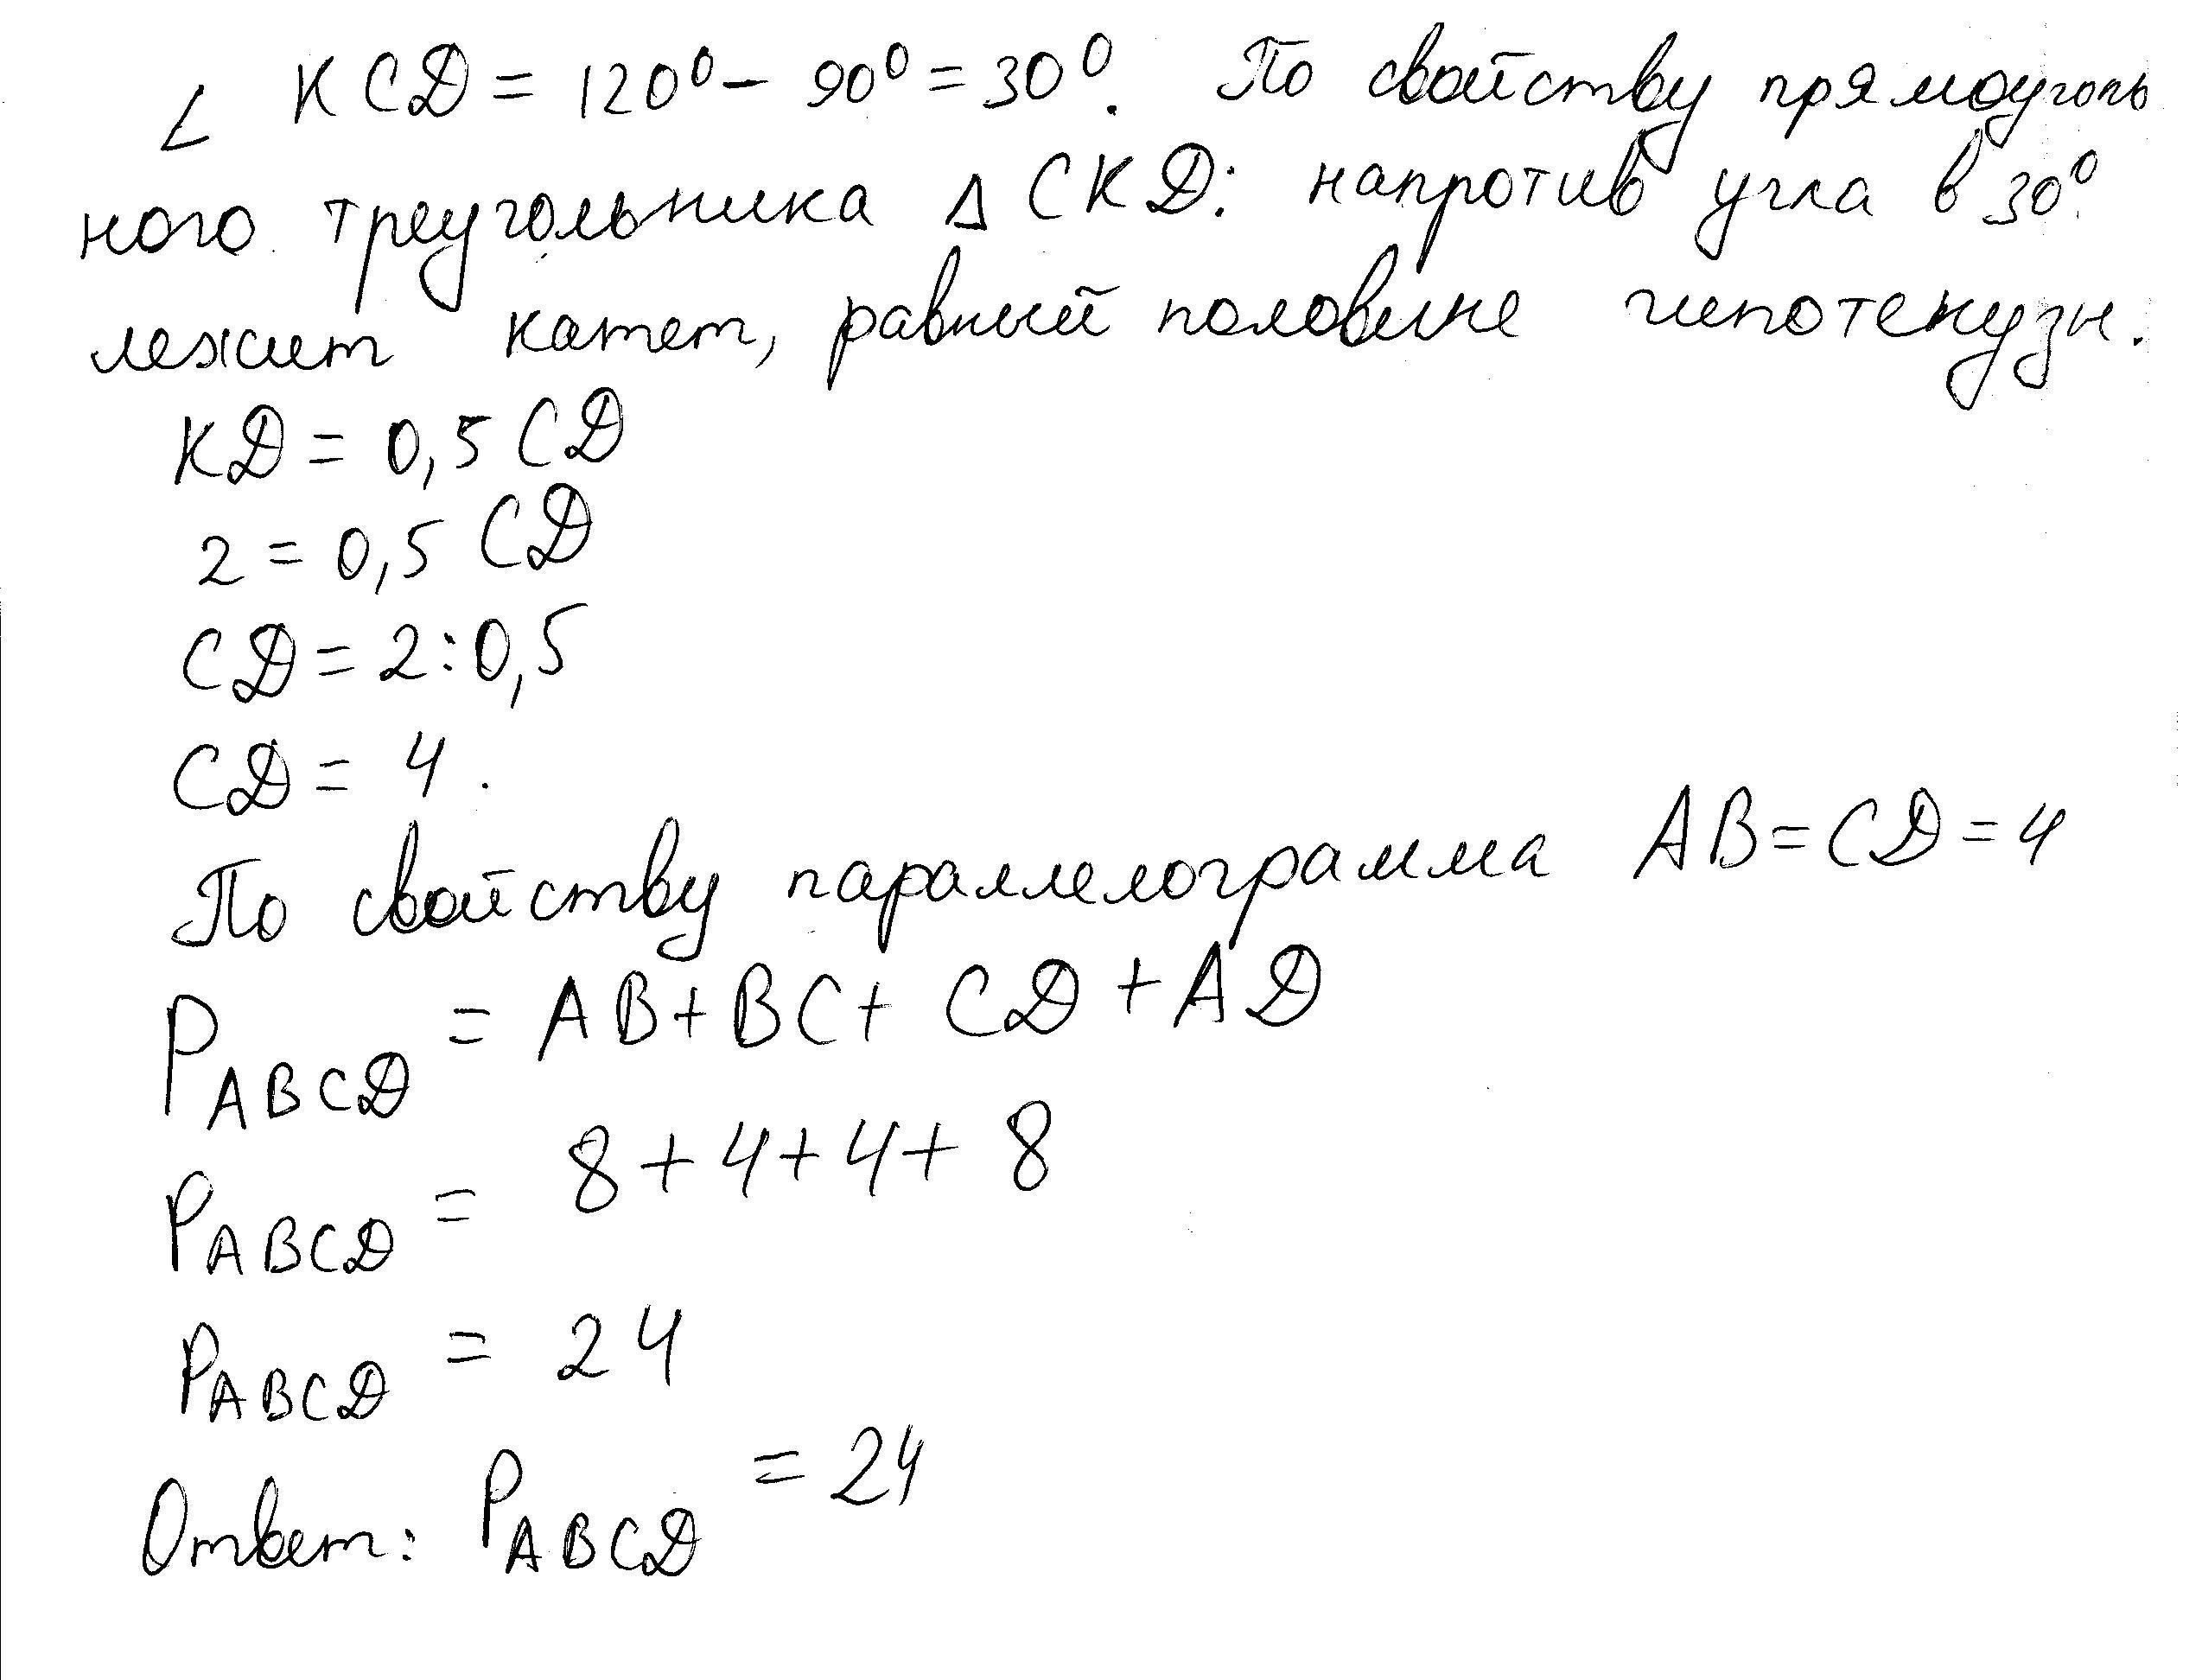 ∠ KCD = 120⁰ - 90⁰ = 30⁰. По свойству прямоуголь
ного треугольника Δ CKD: напротив угла в 30⁰
лежит катет, равный половине гипотенузы.
KD = 0,5 CD
2 = 0,5 CD
CD = 2:0,5
CD = 4.
По свойству параллелограмма AB = CD = 4
P_ABCD = AB + BC + CD + AD
P_ABCD = 8 + 4 + 4 + 8
P_ABCD = 24
Ответ: P_ABCD = 24